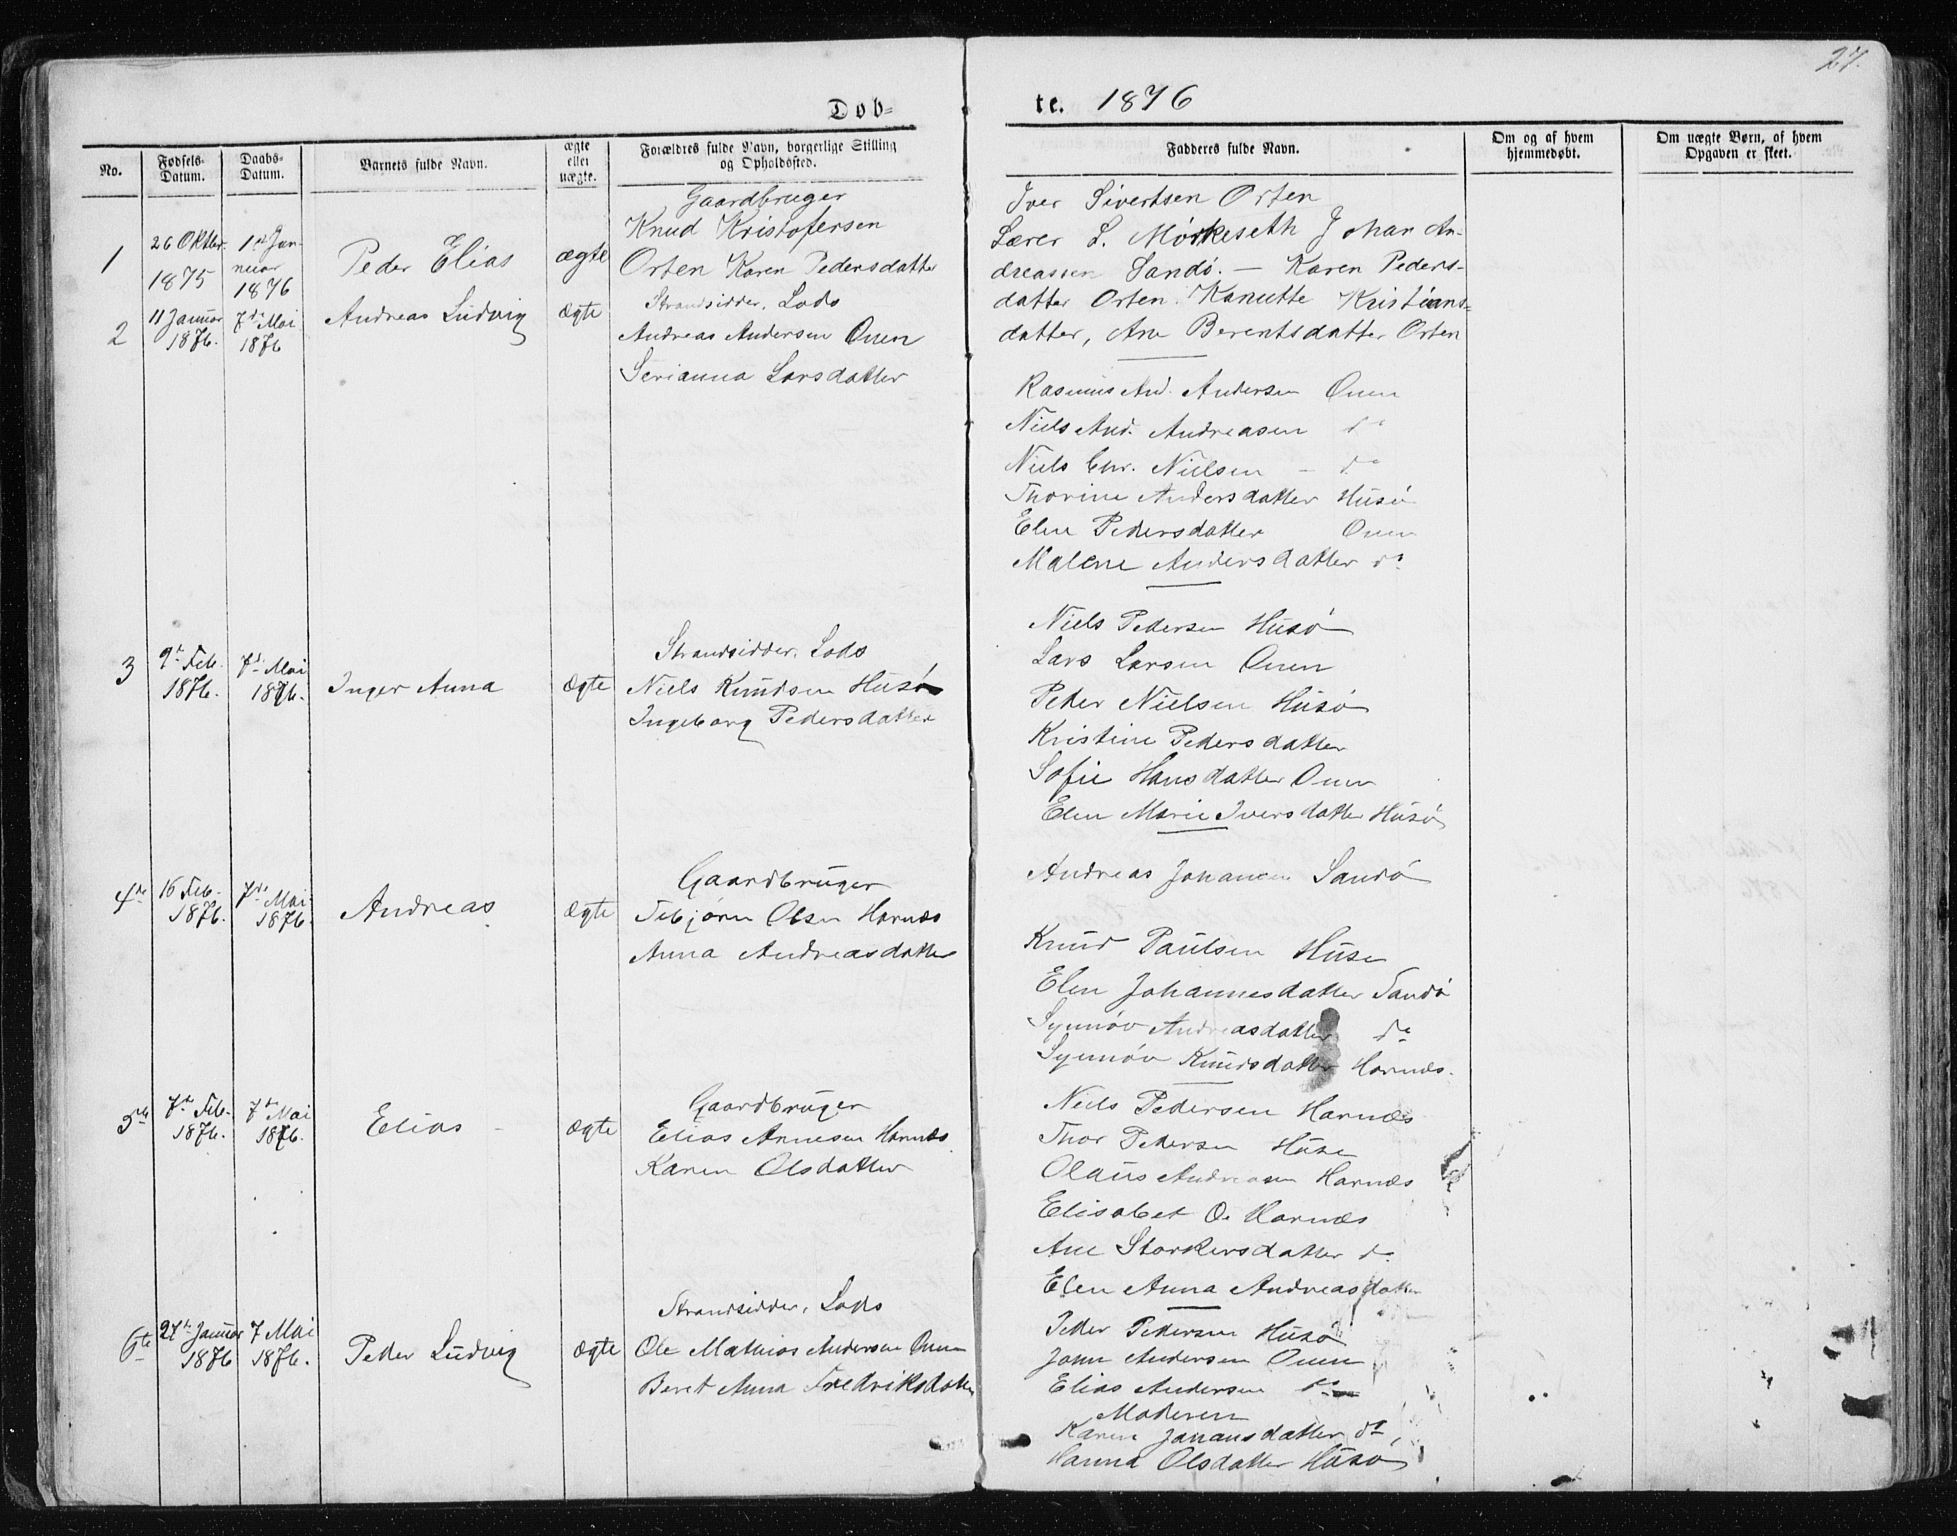 27.
Døb-
te. 1876
No.
Fødsels-
Datum.
Daabs-
Datum.
Barnets fulde Navn.
ægte
eller
uægte.
Forældres fulde Navn, borgerlige Stilling
og Opholdssted.
Fadderes fulde Navn.
Om og af hvem
hjemmedøbt.
Om uægte Børn, af hvem
Opgaven er skeet.
1
26 Oktbr.
1875
1ste Jan-
nuar
1876
Peder Elias
ægte
Gaardbruger
Knud Kristofersen
Orten Karen Pedersdatter
Iver Sivertsen Orten
Lærer L. Mørkeseth Johan An-
dreassen Sandø. — Karen Peders-
datter Orten. Kanutte Kristians-
datter, Ane Berentsdatter Orten
2
11 Januar
1876.
7de Mai
1876
Andreas Ludvig
ægte
Strandsidder, Lods
Andreas Andersen Onen
Serianna Larsdatter
Rasmus And. Andersen Onen
Niels And. Andreasen do
Niels Chr. Nielsen - do
Thorine Andersdatter Husø
Elen Pedersdatter Onen
Malene Andersdatter do
3
9de Feb.
1876.
7de Mai
1876.
Inger Anna
ægte
Strandsidder, Lods
Niels Knudsen Husø
Ingeborg Pedersdatter
Niels Pedersen Husø
Lars Larsen Onen
Peder Nielsen Husø
Kristine Pedersdatter
Sofie Hansdatter Onen
Elen Marie Iversdatter Husø
4de
16 Feb.
1876.
7de Mai
1876.
Andreas
ægte
Gaardbruger
Tebjørn Olsen Harnæs
Anna Andreasdatter
Andreas Johansen Sandø
Knud Paulsen Huse
Elen Johannesdatter Sandø
Synnøv Andreasdatter do
Synnøv Knudsdatter Harnæs.
5te
7de Feb.
1876.
7de Mai
1876.
Elias
ægte
Gaardbruger
Elias Arnesen Harnæs
Karen Olsdatter
Niels Pedersen Harnæs
Thor Pedersen Huse
Olaus Andreasen Harnæs
Elisabet O. Harnæs
Ane Storkersdatter do
Elen Anna Andreasdatter
6te
27de Januar
1876
7 Mai
1876.
Peder Ludvig
ægte
Strandsidder, Lods
Ole Mathias Andersen Onen
Beret Anna Fredriksdatter
Peder Pedersen Husø
John Andersen Onen
Elias Andersen do
Moderen
Karen Johansdatter do,
Hanna Olsdatter Husø